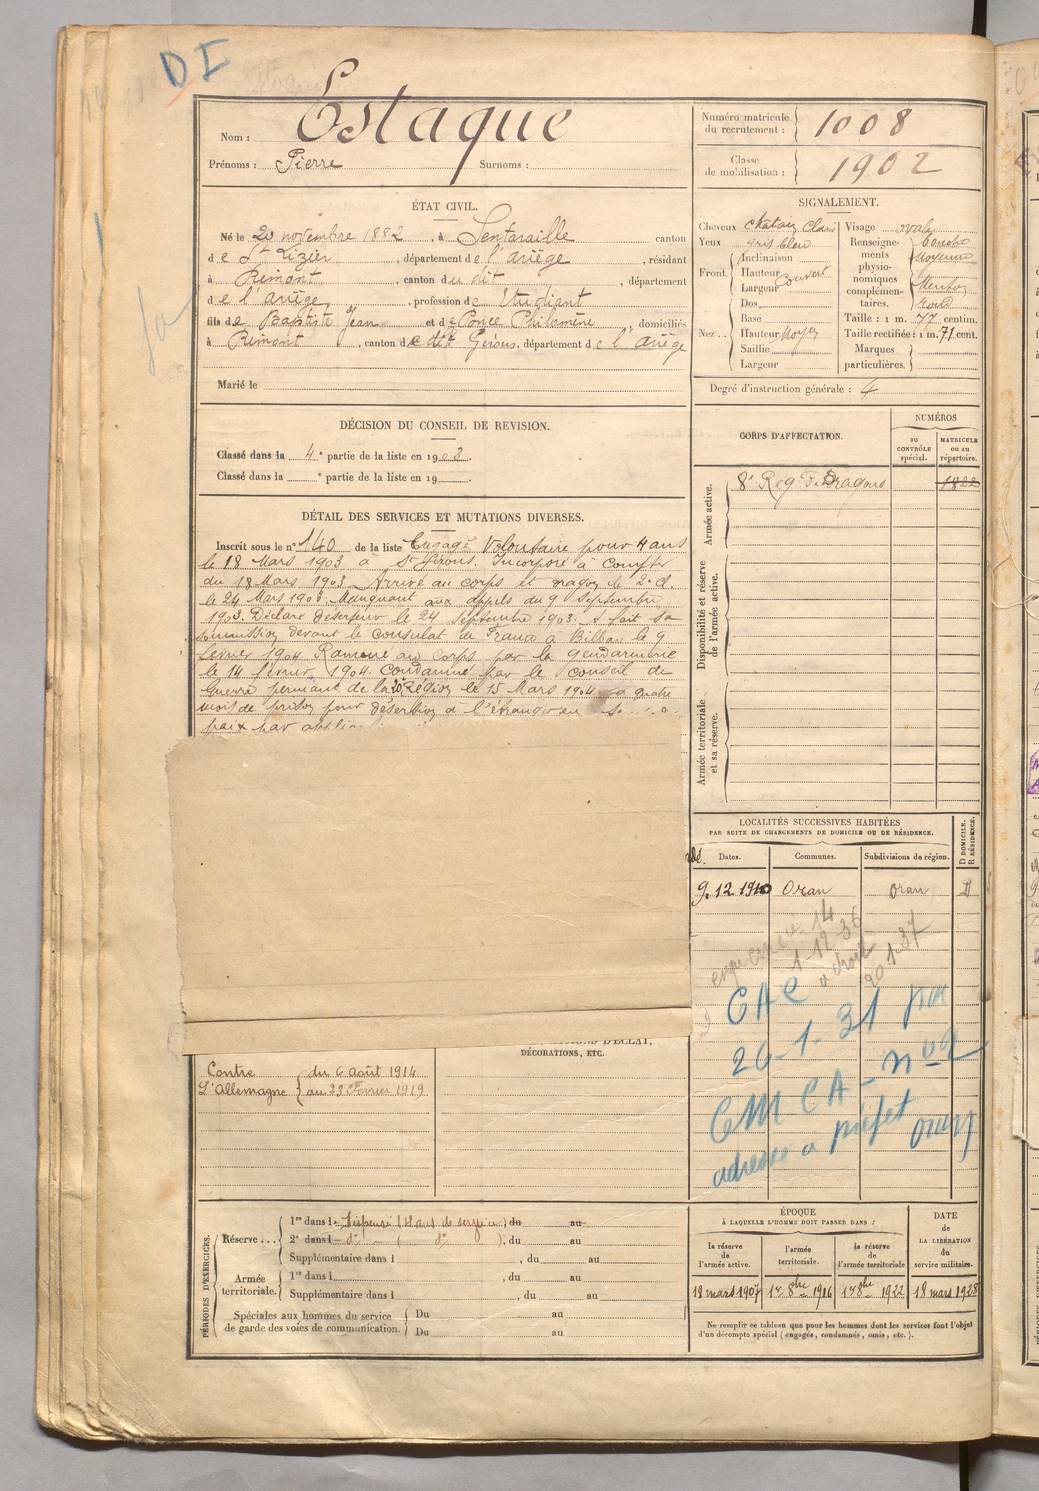 DI
Nom : Estaque
Prénoms : Pierre Surnoms :
Numéro matricule du recrutement : 1008
Classe de mobilisation : 1902
ÉTAT CIVIL.
Né le 20 novembre 1882, à Sentaraille canton
de St Lizier, département de l'ariège, résidant
à Rimont, canton du dit, département
de l'ariège, profession de Etudiant
fils de Baptiste Jean et de Ponce Philomène, domiciliés
à Rimont, canton de St Girons, département de l'ariège
Marié le
SIGNALEMENT.
Cheveux châtain clair
Yeux gris bleu
Front Inclinaison
Hauteur couvert
Largeur
Nez Dos
Base
Hauteur Moyen
Saillie
Largeur
Visage ovale
Renseignements physionomiques complémentaires. bouche
Moyenne
Menton
rond
Taille : 1 m. 77 centim.
Taille rectifiée : 1 m. 71 cent.
Marques particulières.
Degré d'instruction générale : 4
DÉCISION DU CONSEIL DE REVISION.
Classé dans la 4e partie de la liste en 1903.
Classé dans la e partie de la liste en 19 .
DÉTAIL DES SERVICES ET MUTATIONS DIVERSES.
Inscrit sous le n° 140 de la liste Engagé Volontaire pour 4 ans
le 18 Mars 1903 à St Girons. Incorporé à compter
du 18 Mars 1903. Arrivé au corps et dragon de 2e cl.
le 24 Mars 1903. Manquant aux appels du 9 Septembre
1903. Déclaré déserteur le 24 Septembre 1903. A fait sa
soumission devant le consulat de France à Bilbao le 9
février 1904. Ramené au corps par la gendarmerie
le 14 février 1904. Condamné par le conseil de
Guerre permanent de la 20e Région le 15 Mars 1904 à quatre
mois de prison pour désertion à l'étranger en
paix par
CORPS D'AFFECTATION.
NUMÉROS
au CONTRÔLE spécial.
MATRICULE ou au répertoire.
Armée active.
8e Reg t de Dragons 1822
Disponibilité et réserve de l'armée active.
Armée territoriale et sa réserve.
LOCALITÉS SUCCESSIVES HABITÉES
PAR SUITE DE CHANGEMENTS DE DOMICILE OU DE RÉSIDENCE.
Dates. Communes. Subdivisions de région. D DOMICILE. R RÉSIDENCE.
9.12.1910 Oran Oran D
1-12-36
20-1-37
CAC
26-1-31
n° 2
CM CA
adresse à préfet Oran
DÉCORATIONS, ETC.
Contre du 6 août 1914
L'Allemagne au 23 Février 1919
PÉRIODES D'EXERCICES.
Réserve... 1re dans l Dispensé (4 ans de service) du au
2e dans l do ( do ), du au
Supplémentaire dans l , du au
Armée territoriale. 1re dans l , du au
Supplémentaire dans l , du au
Spéciales aux hommes du service de garde des voies de communication. Du au
Du au
ÉPOQUE
À LAQUELLE L'HOMME DOIT PASSER DANS :
la réserve de l'armée active.
l'armée territoriale.
la réserve de l'armée territoriale
DATE de LA LIBÉRATION du service militaire.
18 mars 1907 1er 8bre 1916 1er 8bre 1922 18 mars 1928
Ne remplir ce tableau que pour les hommes dont les services font l'objet
d'un décompte spécial (engagés, condamnés, omis, etc.).